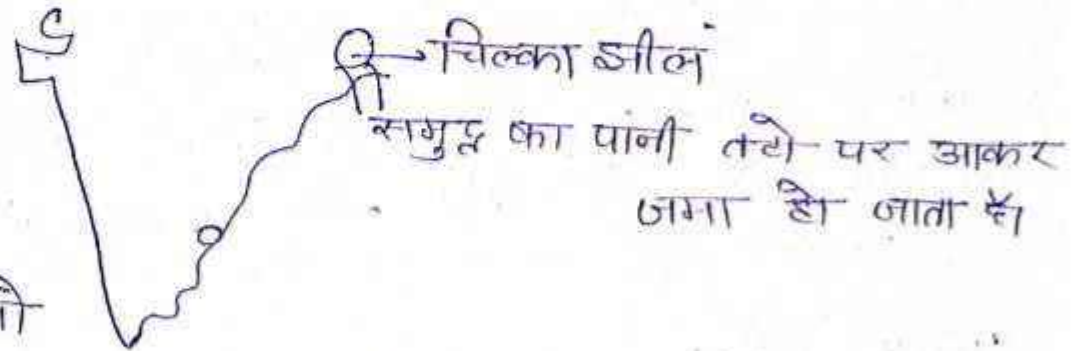 चिल्का झील
समुद्र का पानी तटो पर आकर
जमा हो जाता है।